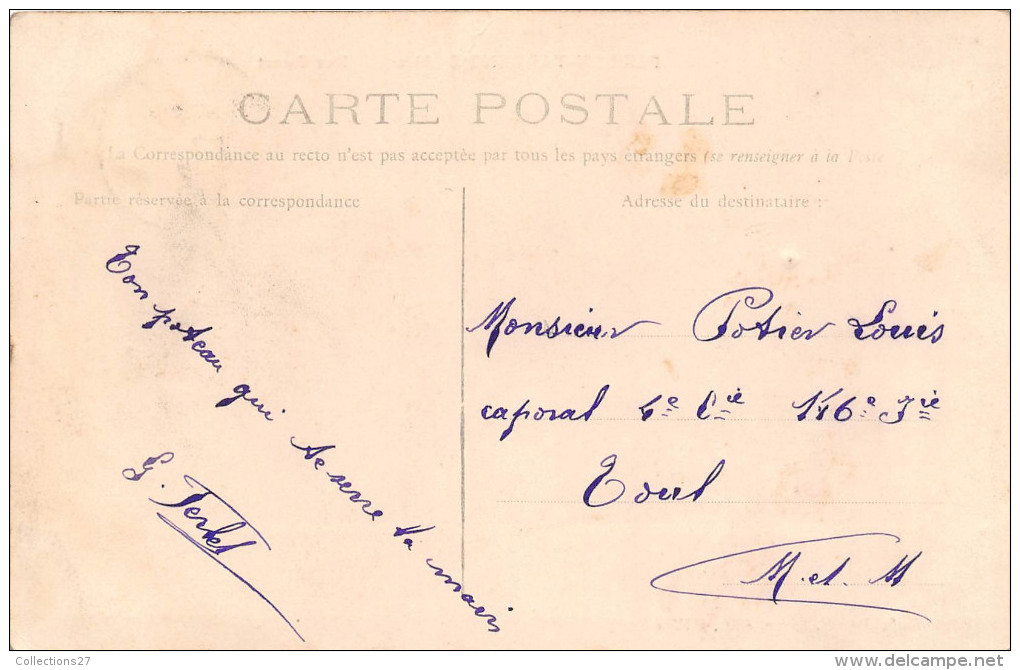 CARTE POSTALE
La Correspondance au recto n'est pas acceptée par tous les pays étrangers (se renseigner à la Poste
Partie réservée à la correspondance
Adresse du destinataire :
Ton poteau qui te serre la main
Monsieur Potier Louis
caporal 4e Cie 146e Iie
Toul
M. et. M
Collections27
www.delcampe.net